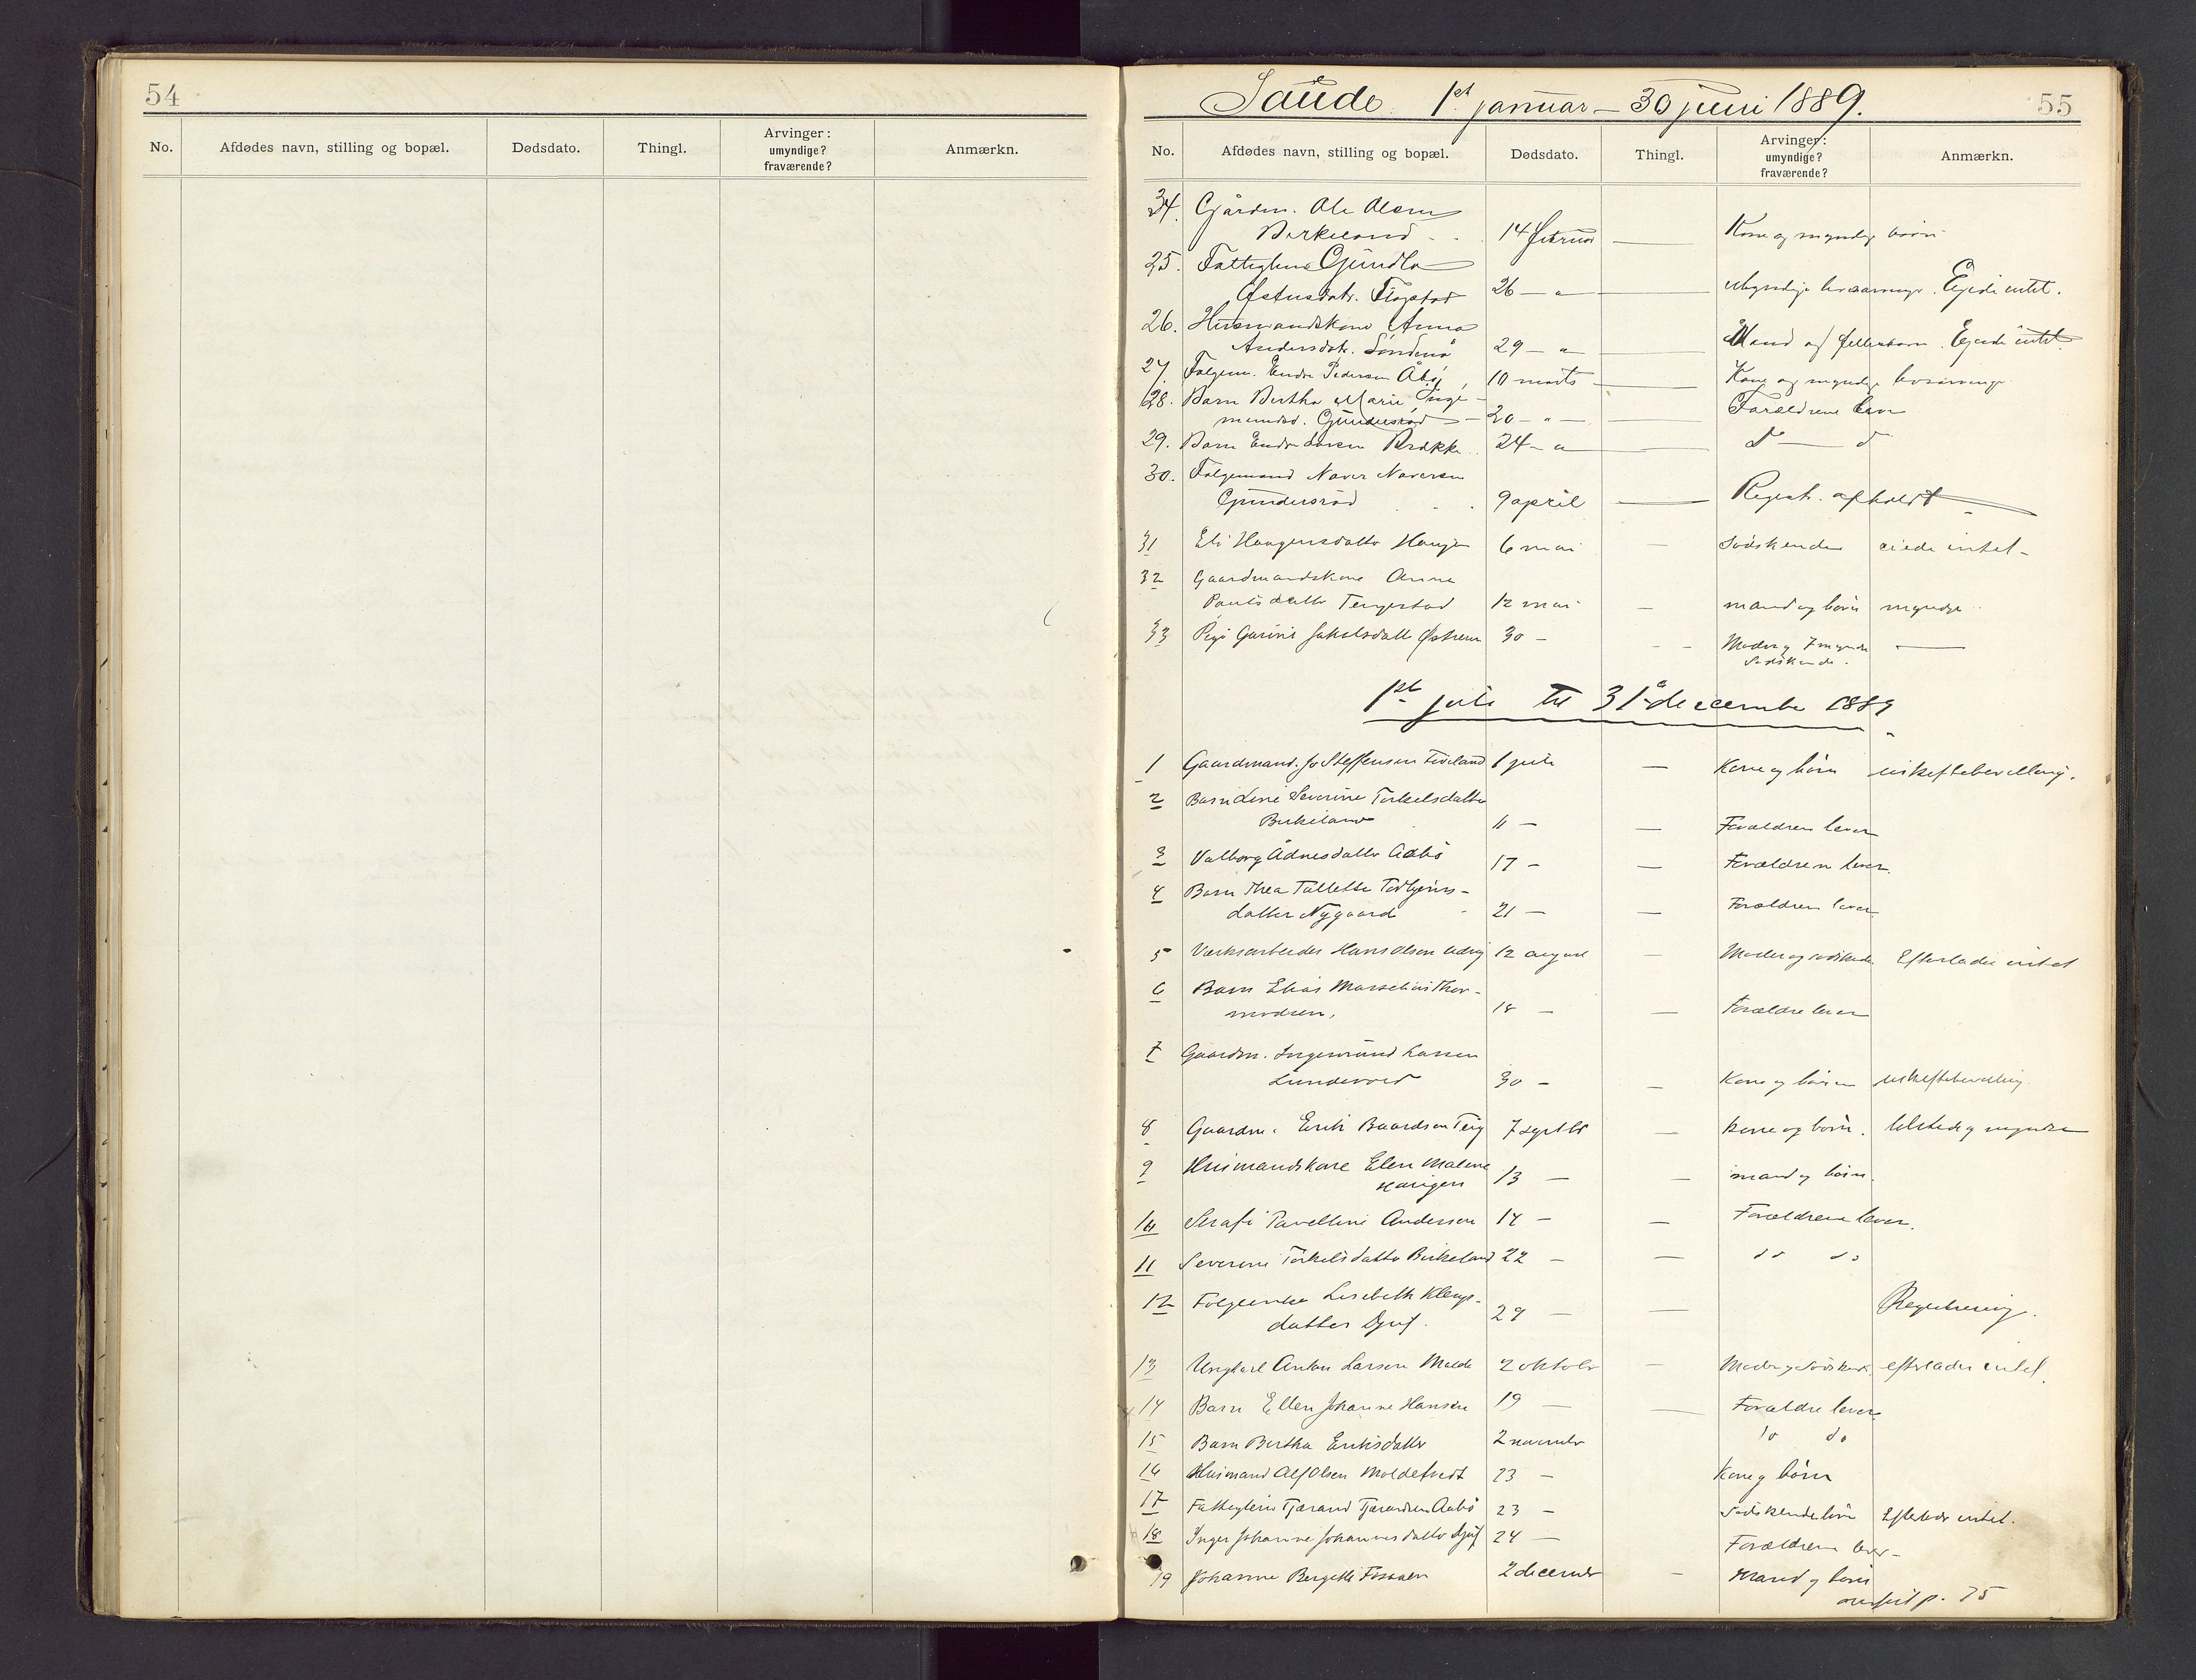 54
No. Afdødes navn, stilling og bopæl. Dødsdato. Thingl. Arvinger: umyndige? fraværende? Anmærkn.
Saude 1st januar – 30 juni 1889. 55
No. Afdødes navn, stilling og bopæl. Dødsdato. Thingl. Arvinger: umyndige? fraværende? Anmærkn.
34. Gårdm. Ole Olsen
Birkeland 14 februar — Kone og myndige børn
25. Fattiglem Gundla
Østensdatr. Flogstad 26 — " — Ejede intet.
26. Husmandskone Anna
Andersdatr. Søndenå 29 — " — Mand og fellesbarn. Ejede intet
27. Folgem. Endre Pedersen Åbø, 10 marts — Kone og myndige livsarvinger
28. Barn Bertha Marie Inge-
mundsd. Gundersrød — 20 — " — Forældrene lever
29. Barn Endre Larsen Brække 24 — " — do — do
30. Folgemand Naver Naversen
Gundersrød 9 april — Registr. afholdt
31 Eli Haagensdatter Haugen 6 mai — Sødskende eiede intet —
32 Gaardmandskone Anne
Paulsdatter Tengestad 12 mai — mand og børn myndige
33 Østrem 30 — Moder og 7 myndige —
Sødskende.
1st juli til 31 december 1889
1 Gaardmand. Jo Steffensen Fiveland 1 juli — Kone og børn uskiftebevilling.
2 Barn Line Severine Torkelsdatter
Birkeland 11 — — Forældrene lever
3 Valborg Ådnesdatter Aabø 17 — — Forældrene lever.
4 Barn Thea Tallette Torbjørns-
datter Nygaard 21 — — Forældrene lever
5 Værksarbeider Hans Olsen 12 august — Moder og sødskende Efterlader intet
6 Barn Elias Marselius Thor-
modsen, 18 — — Forældre lever
7 Gaardm. Ingemund Larsen
Lundevold 30 — — Kone og børn uskiftebevilling.
8 Gaardm. Erik Baardsen Teig 7 septbr — Kone og børn. tilstede og myndige
9 Husmandskone Elen Malene
Haugen 13 — — mand og børn.
10 Serafi Pavelline Andersen 14 — — Forældrene lever.
11 Severine Torkelsdatter Birkeland 22 — — do do
12 Folgeenke Lisebeth Klengs-
datter Djuf. 29 — — Registrering.
13 Ungkarl Anton Larsen Molde 2 oktober — Moder og Sødskende. efterlader intet.
14 Barn Ellen Johanne Hansen 19 — — Forældre lever
15 Barn Bertha Eriksdatter 2 november do do
16 Husmand Alf Olsen Moldetvedt 23 — Kone og børn
17 Fattiglem Tjærand Tjærandsen Aabø 23 — Sødskendebørn Efterlader intet.
18 Inger Johanne Johannesdatter Djuf 24 — Forældrene lever —
19 Johanne Bergitte Fossaen 2 december — Mand og børn
overført p. 75